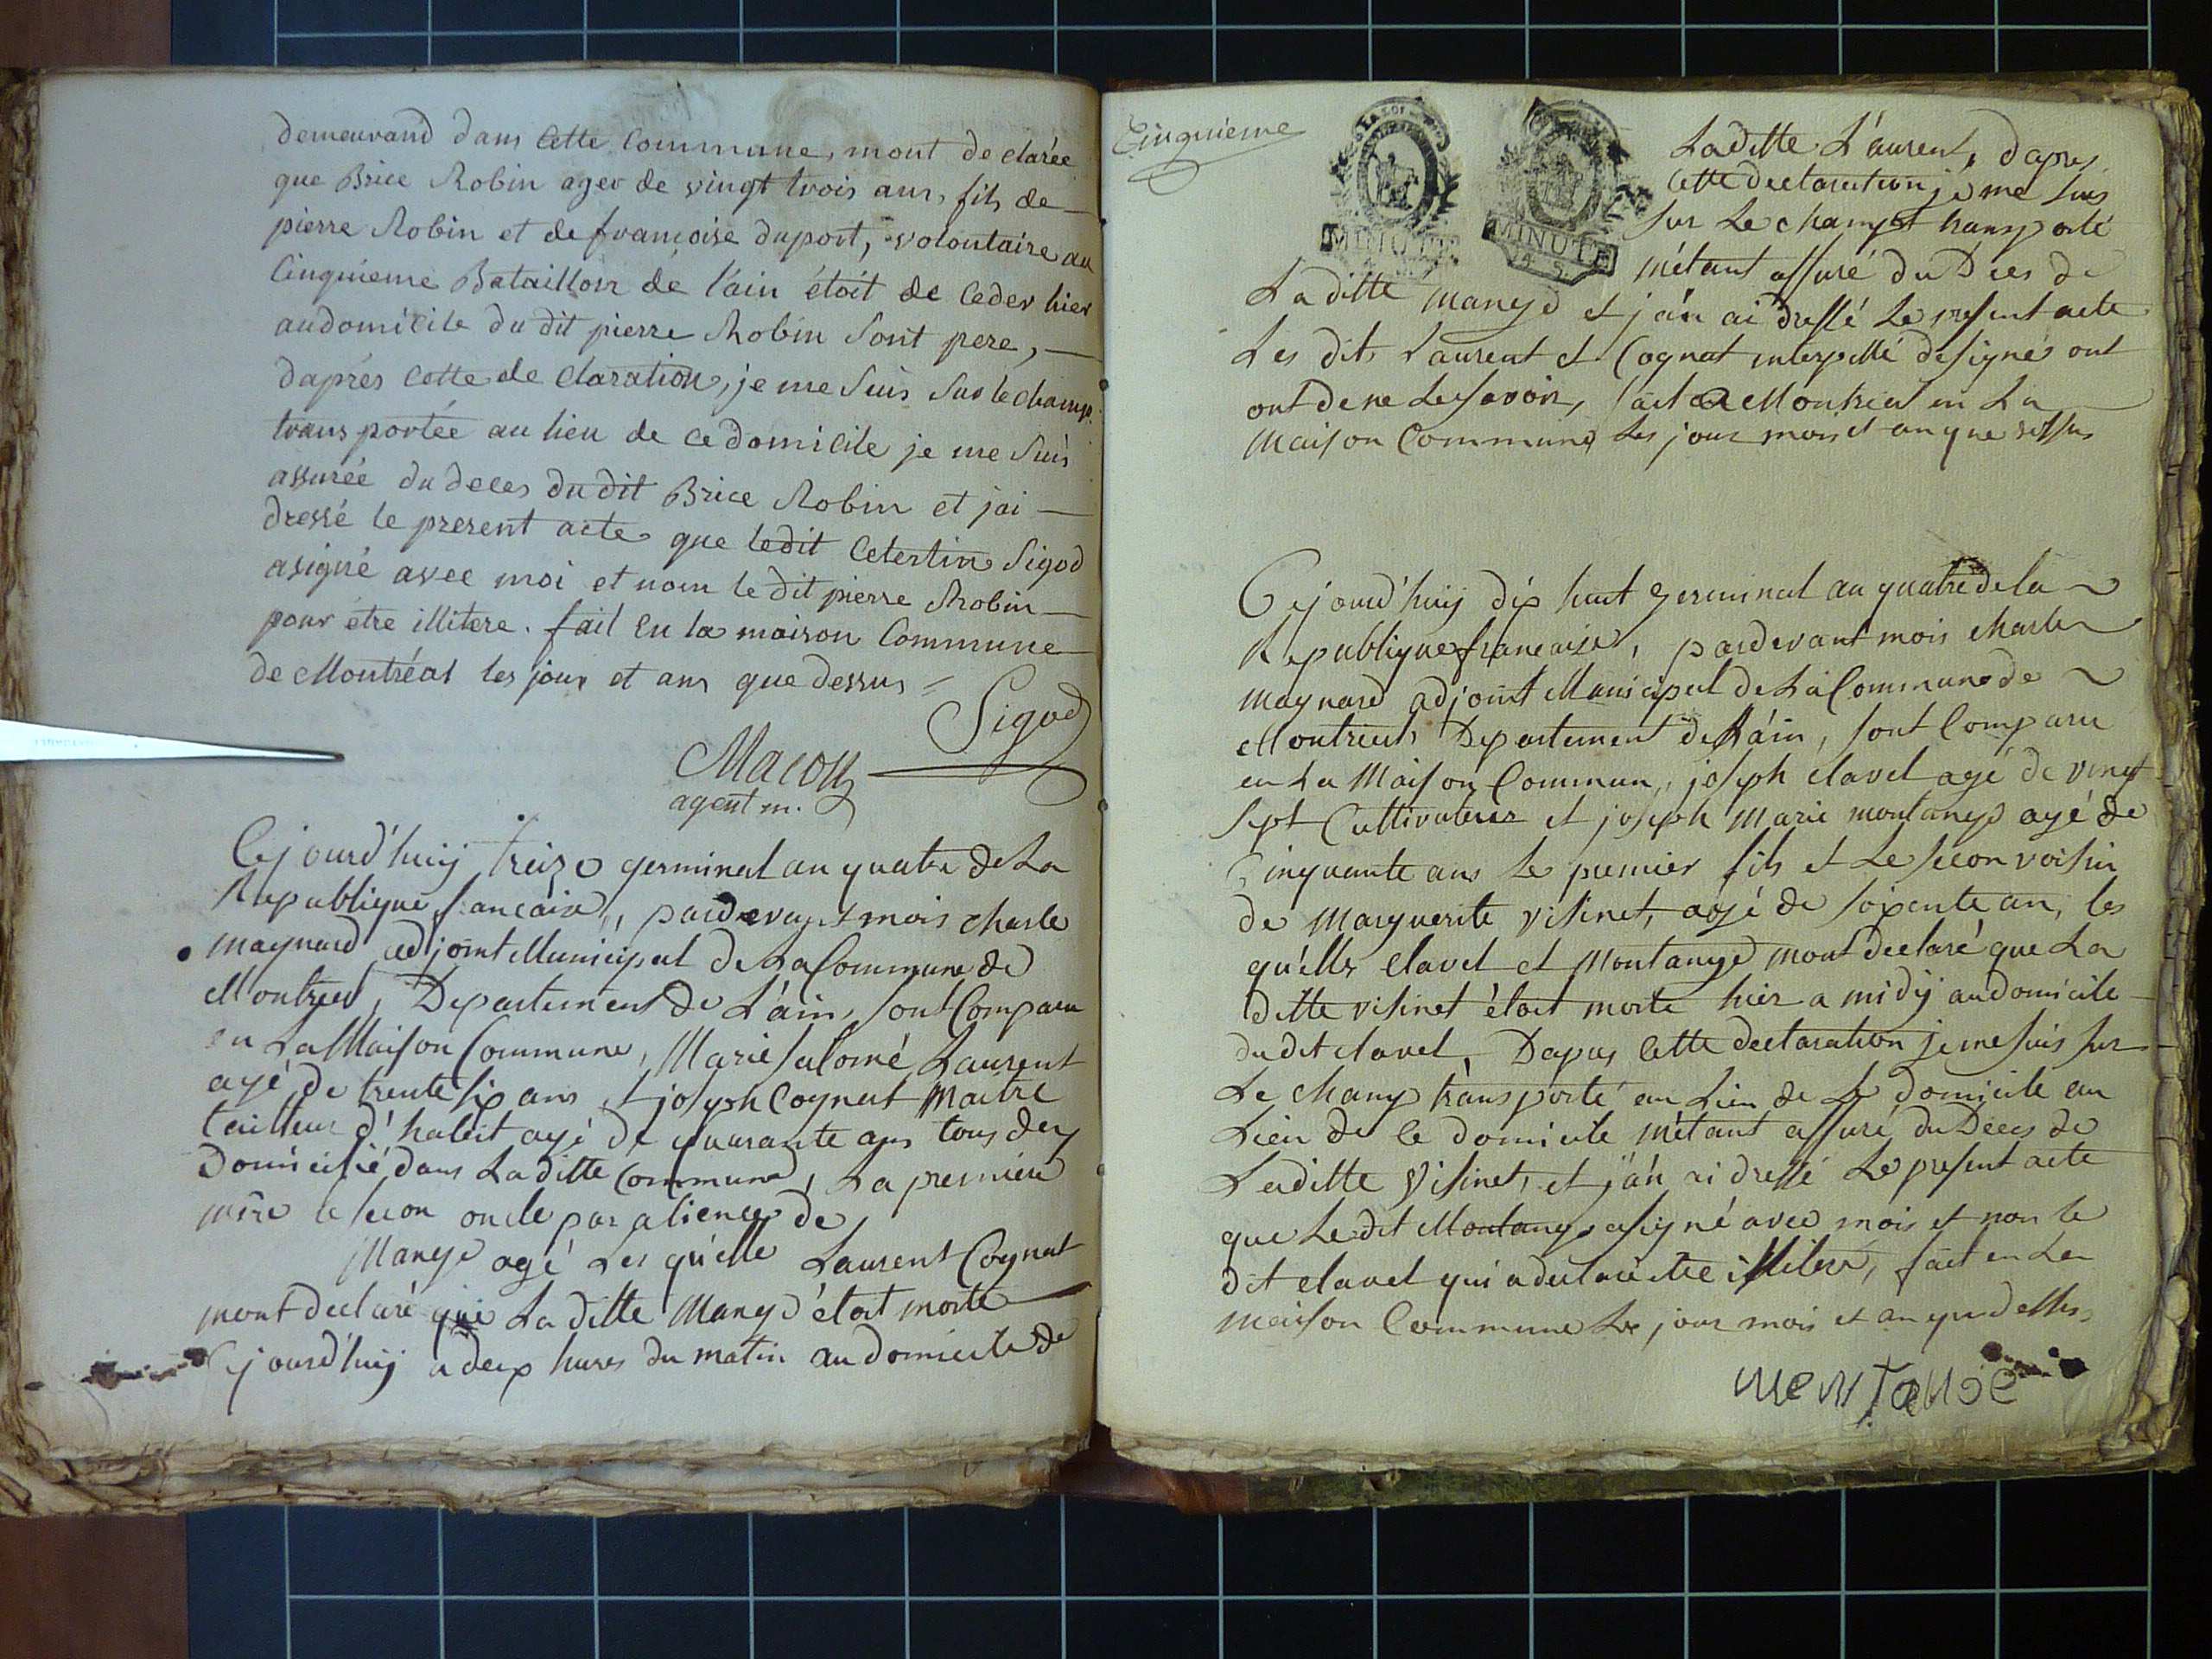 demeurand dans cette Commune, mont de clarée
que Brice Robin ager de vingt trois ans, fils de
pierre Robin et de françoise duport, volontaire au
Cinquieme Bataillon de l'ain étoit de ceder hier
au domicile du dit pierre Robin sont pere,
d'aprés cette de claration, je me suis sur le champ
trans portée au lieu de ce domicile je me suis
assurée du deces du dit Brice Robin et jai
dressé le present acte que ledit Celestin Sigod
asigné avec moi et nom le dit pierre Robin
pour étre illitere. fait en la maison Commune
de Montréal les jour et ans que dessus
Sigod
Macon
agent m.
Cejourd'huij treize germinal an quatre de La
Republique francaise, pardevant mois charle
maynard adjoint Municipal de La Commune de
Montreal, Departement de L'ain, sont Comparu
en La Maison Commune, Marie salomé Laurent
agé de trente six ans et joseph Cognat Maitre
tailleur d'habit agé de quarante ans tous deux
Domicilié dans La ditte Commune, La premiere
mere le secon oncle par alience de
Mange agé Les qu'elle Laurent Cognat
mont declaré que La ditte Mange étoit morte
Cejourd'huij a deux hures du matin au domicile de
Cinquieme
MINUTE
MINUTE
La ditte L'aurent, dapres
Cette declaration je me suis
sur Le champt transporté
métant assuré du Dces de
La ditte mange et j'an ai dressé Le present acte
Les dits Laurent et Cognat interpellé de signé ont
ont de ne Le savoir, fait a Montreal en La
maison Commune Les jour mois et an que dessus
Cejourd'huij dix huit germinal an quatre de la
Republique francaise, pardevant mois charle
maynard adjoint Municipal de La Commune de
Montreal, Departement de L'ain, sont Comparu
en La Maison Commun, joseph clavel agé de vingt
sept Cultivateur et joseph Marie montange agé de
Cinquante ans Le premier fils et Le secon voisin
de Marguerite visinet, agé de soixente an, les
qu'elle clavel et Montange mont declaré que La
ditte visinet étoit morte hier a midij au domicile
du dit clavel, Dapres Cette declaration je me suis sur
Le champ transporté au Lieu de Le domicile au
Lieu de Ce domicile métant assuré du Deces de
La ditte Visinet, et j'an ai dressé Le present acte
que Le dit Montange asigné avec mois et non le
dit clavel qui a declaré étre illitere, fait en La
maison Commune Les jour mois et an que dessus
montange